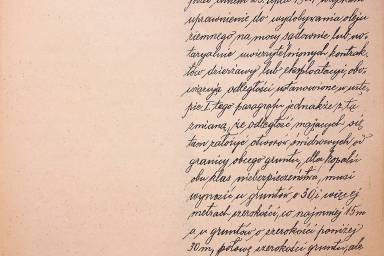 uprawnienie do wydobywania oleju
ziemnego na mocy sądownie lub no-
taryalnie uwierzytelnionych kontrak-
tów dzierżawy lub eksploatacyi, obo-
wiązują odległości ustanowione w ustę-
pie I tego paragrafu jednakże z tą
zmianą, że odległość mających się
tam założyć otworów świdrowych od
granicy obcego gruntu, dla kopalń
obu klas niebezpieczeństwa musi
wynosić w gruntów o 30 i więcej
metrach szerokości, co najmniej 15 m
a w gruntów o szerokości poniżej
30 m, połowę szerokości gruntu, ale